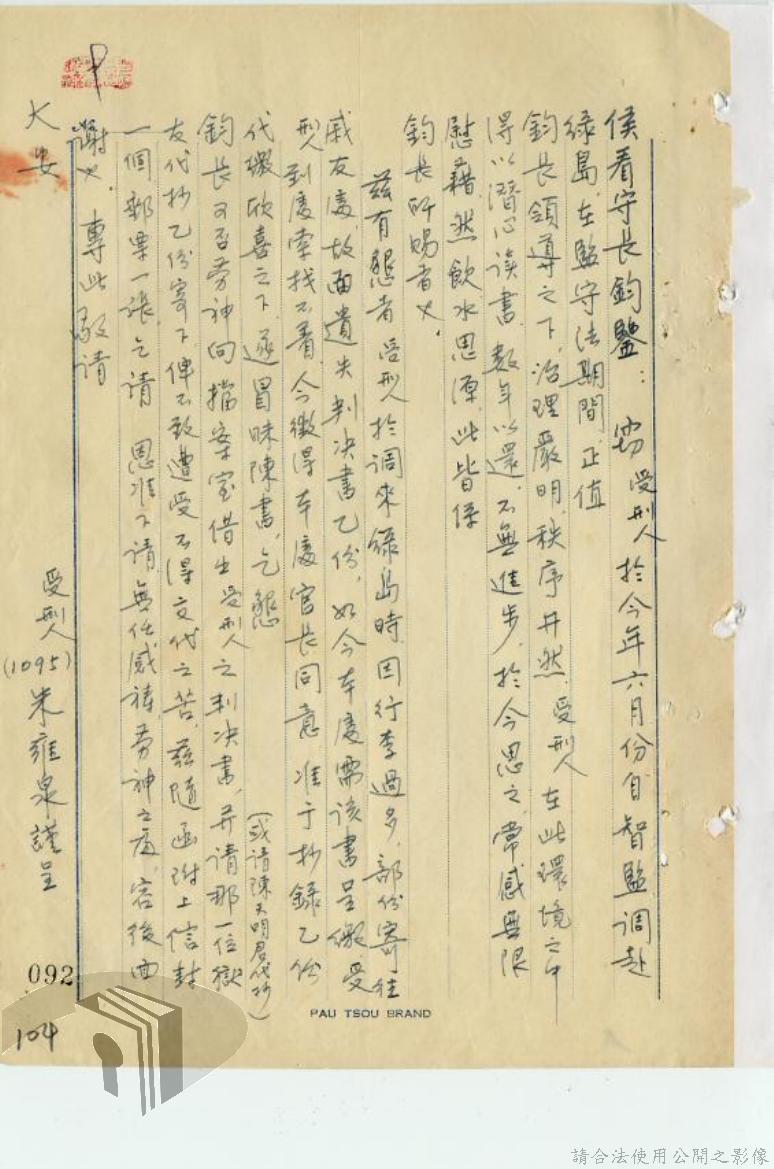 侯看守長鈞鑒：竊受刑人於今年六月份自智監調赴
綠島，在監守法期間，正值
鈞長領導之下，治理嚴明，秩序井然，受刑人在此環境之中
得以潛心讀書，數年以還，不無進步，於今思之，常感無限
慰藉，然飲水思源，此皆係
鈞長所賜者也．
茲有懇者，受刑人於調來綠島時，因行李過多，部份寄往
戚友處，故而遺失判決書乙份，如今本處需該書呈繳，受
刑人到處索找不着，今徵得本處官長同意，准于抄錄乙份
代繳，欣喜之下，遂冒昧陳書，乞懇
（或請陳天明君代抄）
鈞長可否勞神向檔案室借出受刑人之判決書，并請那一位獄
友代抄乙份寄下，俾不致遭受不得交代之苦，茲隨函附上信封
一個，郵票一張，乞請 恩准下請，無任感禱，勞神之處，容後面
謝也．專此敬請
大安
受刑人(1095)朱雍泉謹呈
092
104
PAU TSOU BRAND
請合法使用公開之影像